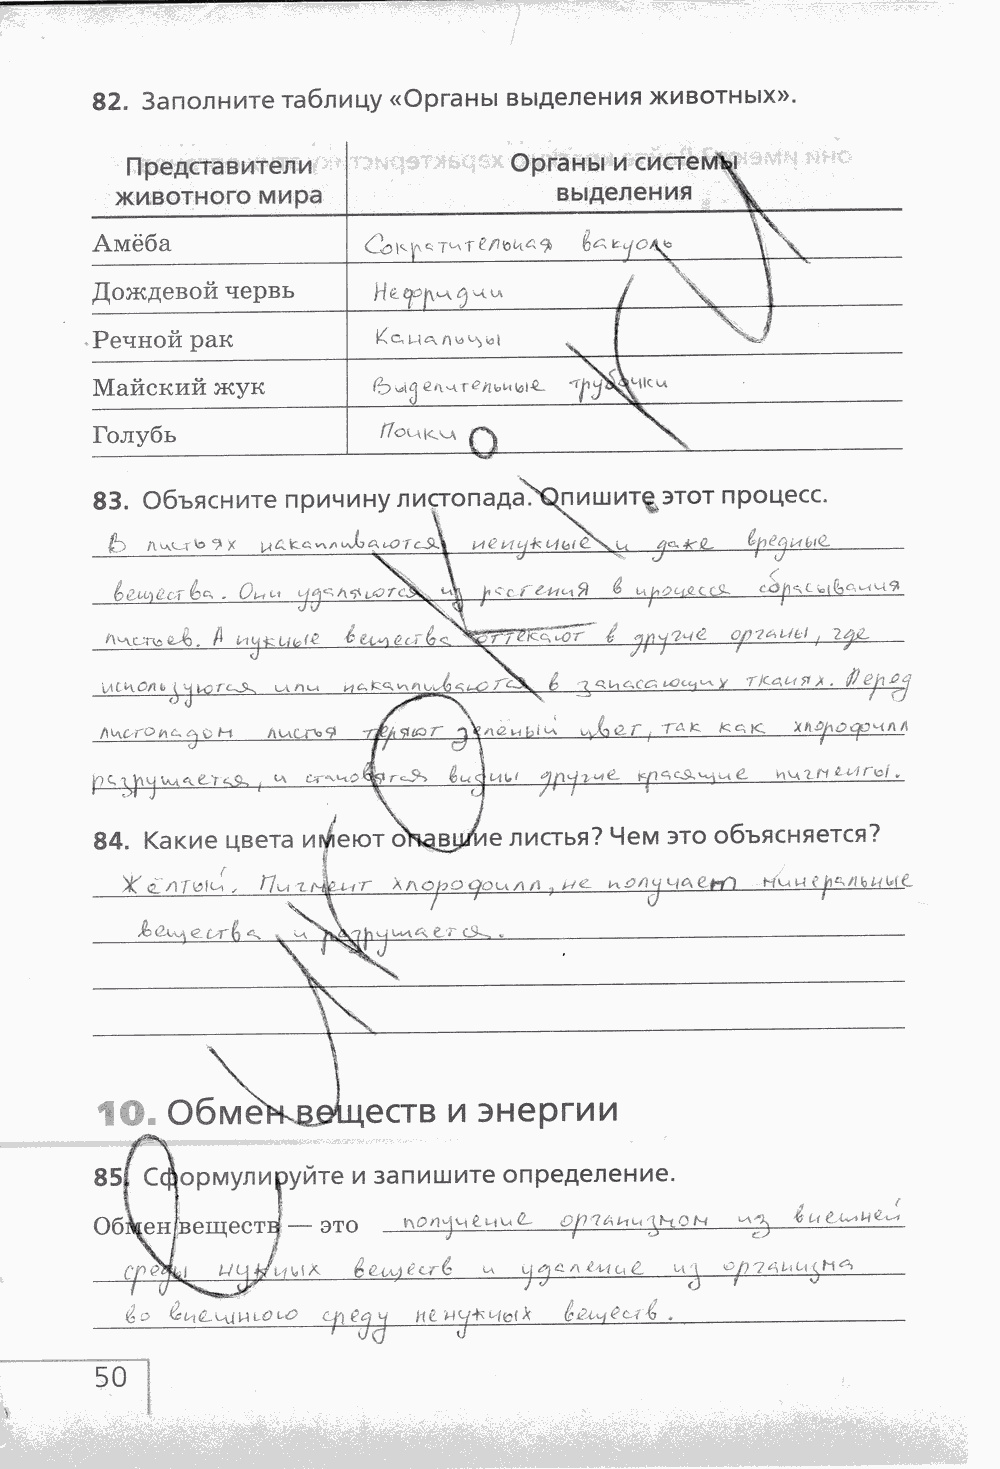 82. Заполните таблицу «Органы выделения животных».
Представители животного мира
Органы и системы выделения
Амёба Сократительная вакуоль
Дождевой червь Нефридии
Речной рак Канальцы
Майский жук Выделительные трубочки
Голубь Почки
83. Объясните причину листопада. Опишите этот процесс.
В листьях накапливаются ненужные и даже вредные
вещества. Они удаляются из растения в процессе сбрасывания
листьев. А нужные вещества оттекают в другие органы, где
используются или накапливаются в запасающих тканях. Перед
листопадом листья теряют зелёный цвет, так как хлорофилл
разрушается, и становятся видны другие красящие пигменты.
84. Какие цвета имеют опавшие листья? Чем это объясняется?
Жёлтый. Пигмент хлорофилл, не получает минеральные
вещества и разрушается.
10. Обмен веществ и энергии
85. Сформулируйте и запишите определение.
Обмен веществ — это получение организмом из внешней
среды нужных веществ и удаление из организма
во внешнюю среду ненужных веществ.
50